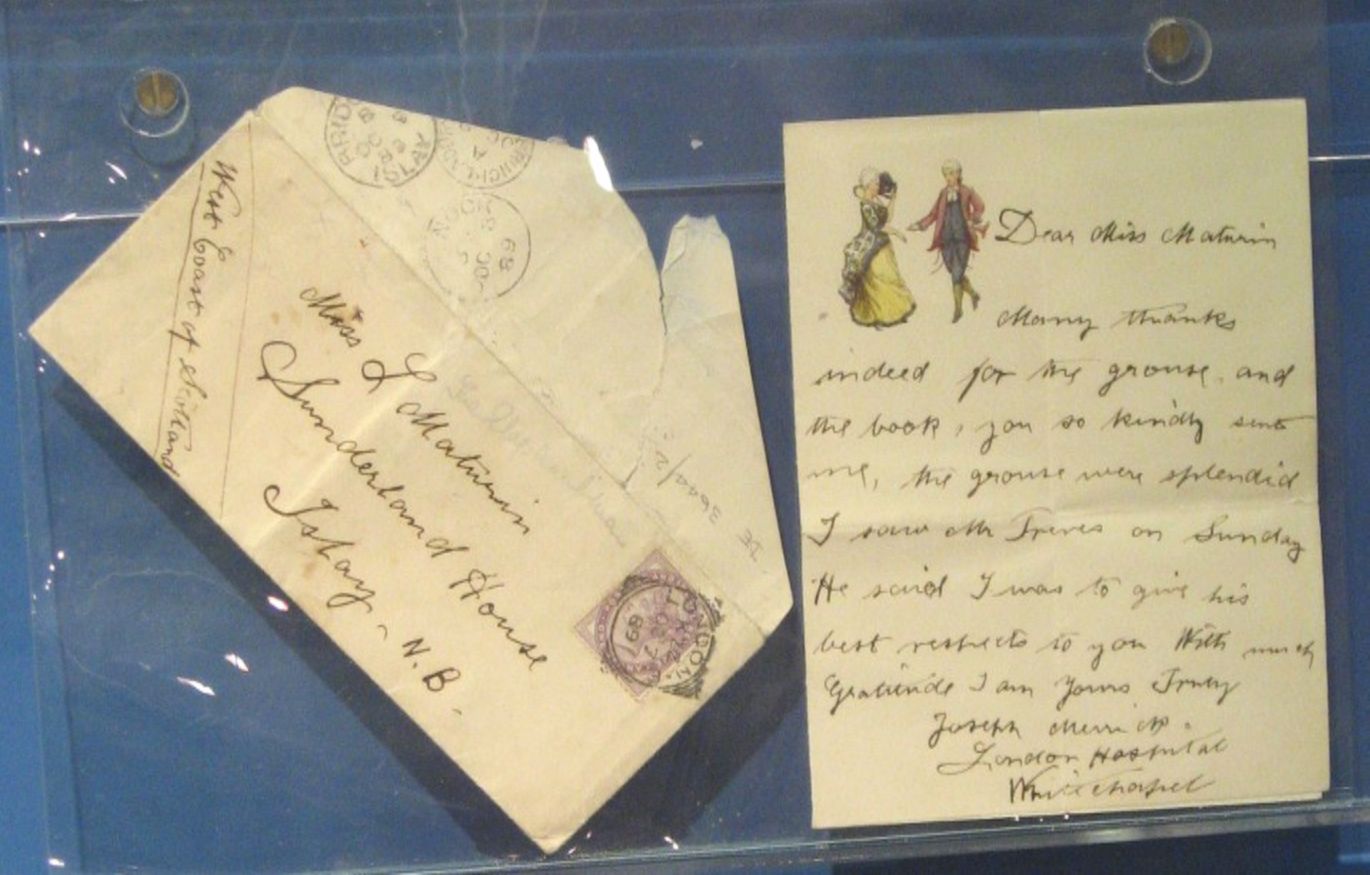 West Coast of Scotland
Miss L Maturin
Sunderland House
Islay - N.B -
ISLAY
LONDON
89
Dear Miss Maturin
Many thanks
indeed for the grouse, and
the book, you so kindly sent
me, the grouse were splendid
I saw Mr Treves on Sunday
He said I was to give his
best respects to you With much
Gratitude I am Yours Truly
Joseph Merrick.
London Hospital
Whitechapel